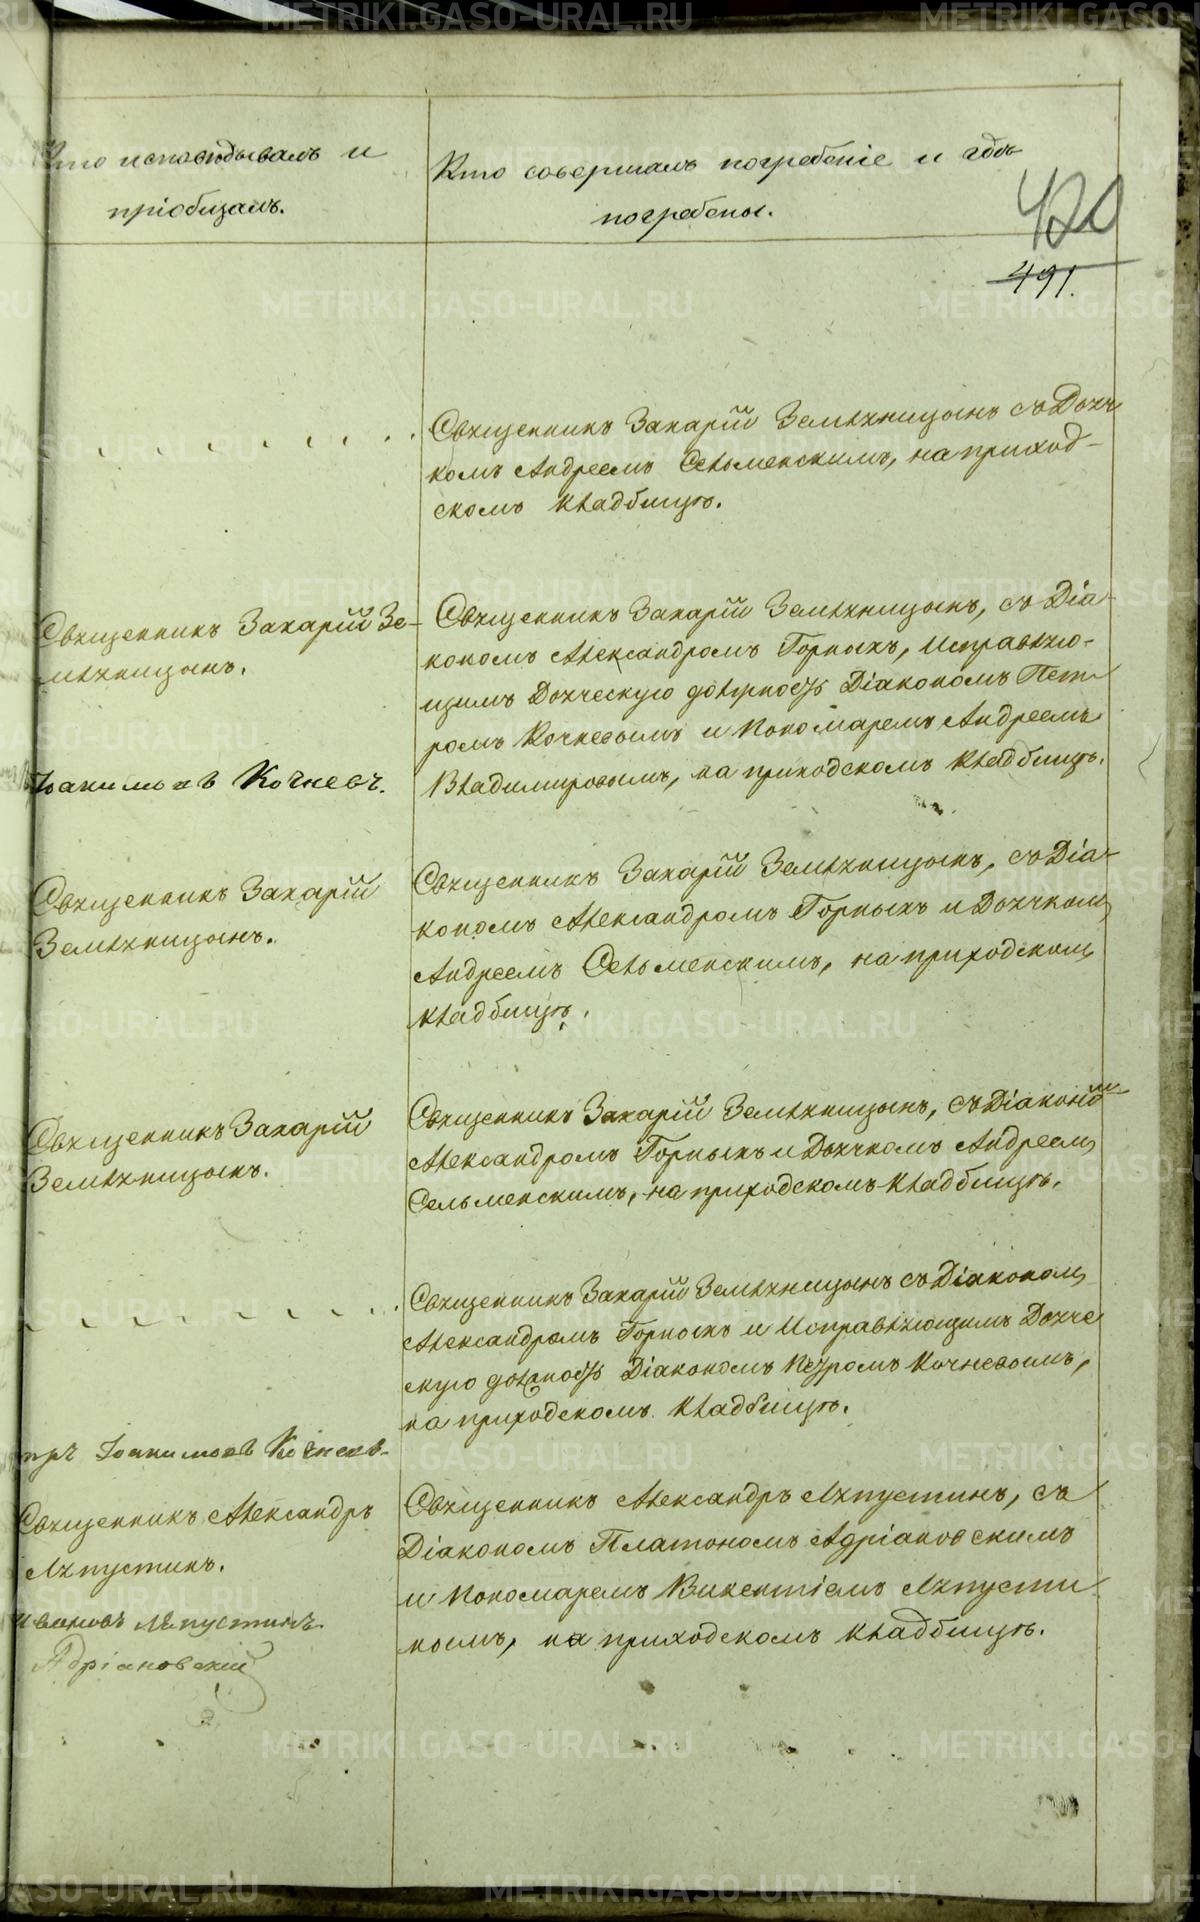 Кто исповѣдывалъ и
пріобщалъ.
Кто совершалъ погребеніе и гдѣ
погребены.
420
491.
Священникъ Захарій Земляницынъ съ Дьяч
комъ Андреемъ Сельменскимъ, на приход-
скомъ кладбищѣ.
Священникъ Захарій Зе-
мляницынъ.
Священникъ Захарій Земляницынъ, съ Діа-
кономъ Александромъ Горныхъ, Исправляю-
щимъ Дьяческую должность Діакономъ Пет-
ромъ Кочневымъ и Пономаремъ Андреемъ
Владимировымъ, на приходскомъ кладбищѣ.
Іоакимовъ Кочневъ.
Священникъ Захарій
Земляницынъ.
Священникъ Захарій Земляницынъ, съ Діа-
кономъ Александромъ Горныхъ и Дьячкомъ
Андреемъ Сельменскимъ, на приходскомъ
кладбищѣ.
Священникъ Захарій
Земляницынъ.
Священникъ Захарій Земляницынъ, съ Діакономъ
Александромъ Горныхъ и Дьячкомъ Андреемъ
Сельменскимъ, на приходскомъ кладбищѣ.
Священникъ Захарій Земляницынъ съ Діакономъ
Александромъ Горныхъ и Исправляющимъ Дьяче
скую должность Діакономъ Петромъ Кочневымъ,
на приходскомъ кладбищѣ.
Іоакимовъ Кочневъ
Священникъ Александръ
Ляпустинъ.
Священникъ Александръ Ляпустинъ, съ
Діакономъ Платономъ Адріановскимъ
и Пономаремъ Викентіемъ Ляпусти
нымъ, на приходскомъ кладбищѣ.
Ивановъ Ляпустинъ.
Адріановскій
METRIKI.GASO-URAL.RU